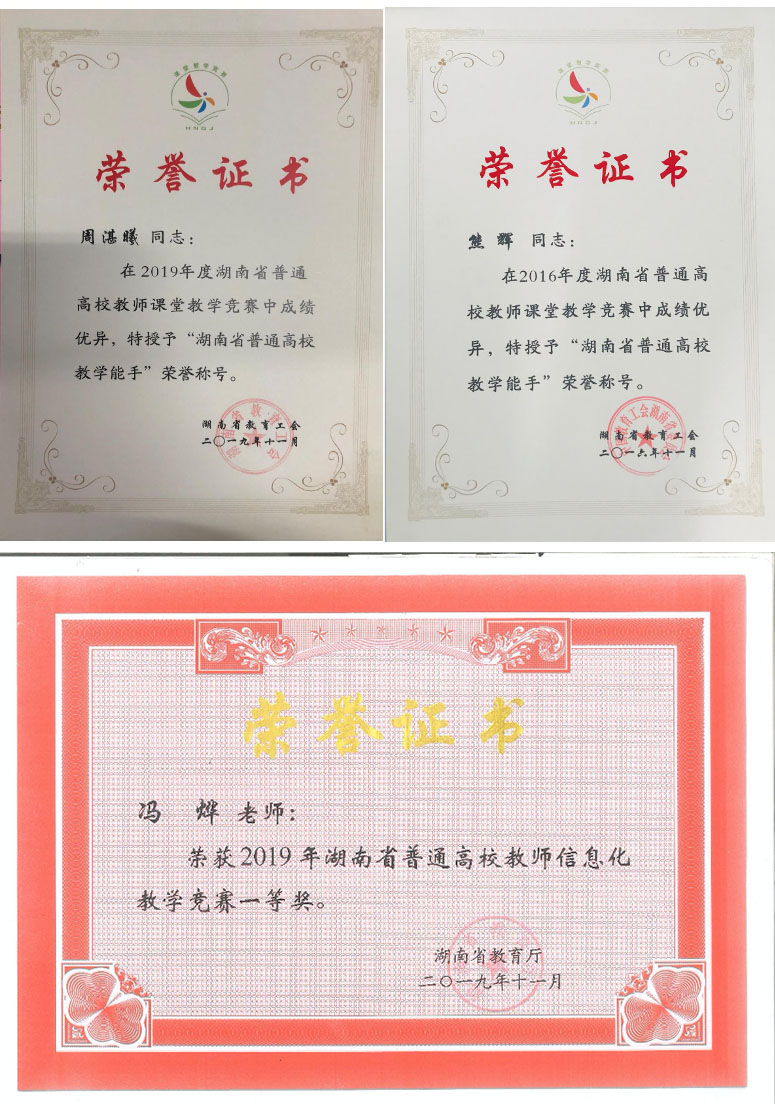 课堂教学竞赛
HNGJ
荣誉证书
周湛曦 同志：
在2019年度湖南省普通
高校教师课堂教学竞赛中成绩
优异，特授予“湖南省普通高校
教学能手”荣誉称号。
湖南省教育工会
二〇一九年十一月
课堂教学竞赛
HNGJ
荣誉证书
熊辉 同志：
在2016年度湖南省普通高
校教师课堂教学竞赛中成绩优
异，特授予“湖南省普通高校
教学能手”荣誉称号。
湖南省教育工会
二〇一六年十一月
荣誉证书
冯烨 老师：
荣获2019年湖南省普通高校教师信息化
教学竞赛一等奖。
湖南省教育厅
二〇一九年十一月